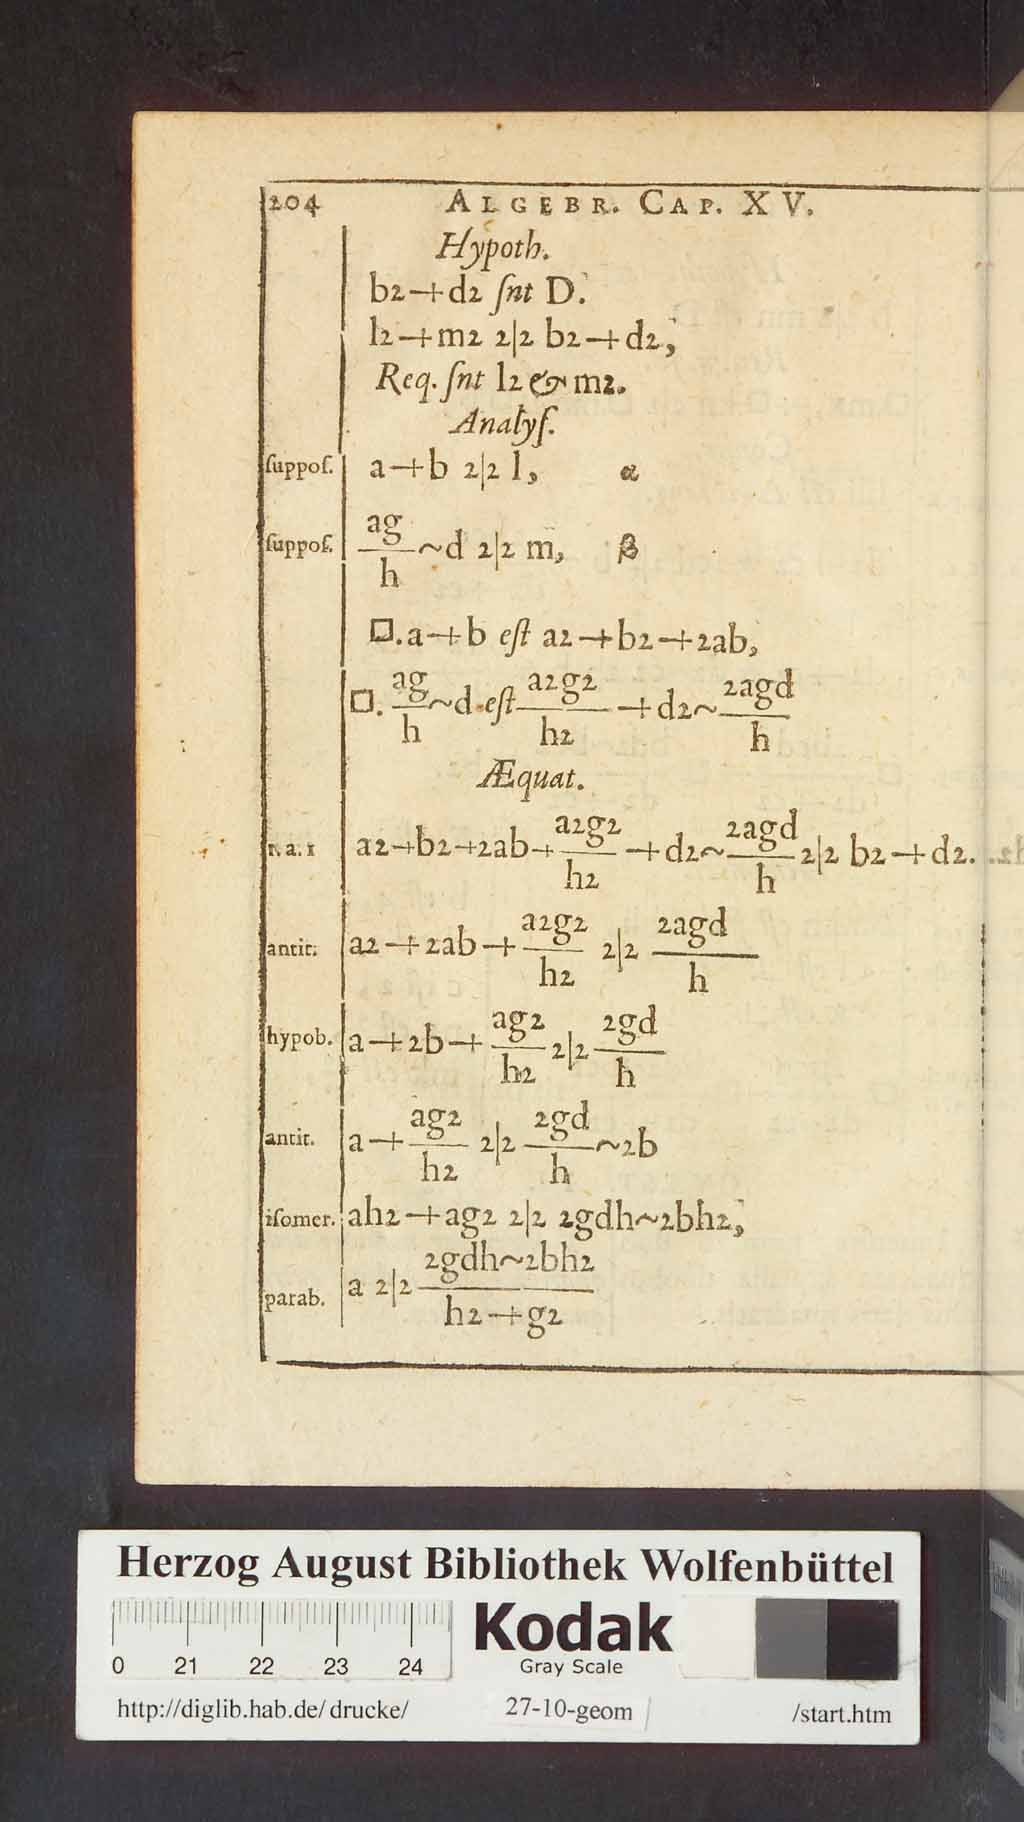 204 ALGEBR. CAP. XV.
Hypoth.
b2+d2 ſnt D.
l2+m2 2|2 b2+d2,
Req. ſnt l2 & m2.
Analyſ.
ſuppoſ. a+b 2|2 l, α
ſuppoſ. ag/h ~d 2|2 m, β
□.a+b eſt a2+b2+2ab,
□. ag/h ~d eſt a2g2/h2 +d2~ 2agd/h
Æquat.
1. a. 1 a2+b2+2ab+ a2g2/h2 +d2~ 2agd/h 2|2 b2+d2.
antit. a2+2ab+ a2g2/h2 2|2 2agd/h
hypob. a+2b+ ag2/h2 2|2 2gd/h
antit. a+ ag2/h2 2|2 2gd/h ~2b
iſomer. ah2+ag2 2|2 2gdh~2bh2,
parab. a 2|2 2gdh~2bh2/h2+g2
Herzog August Bibliothek Wolfenbüttel
0 21 22 23 24
Kodak
Gray Scale
http://diglib.hab.de/drucke/ 27-10-geom /start.htm